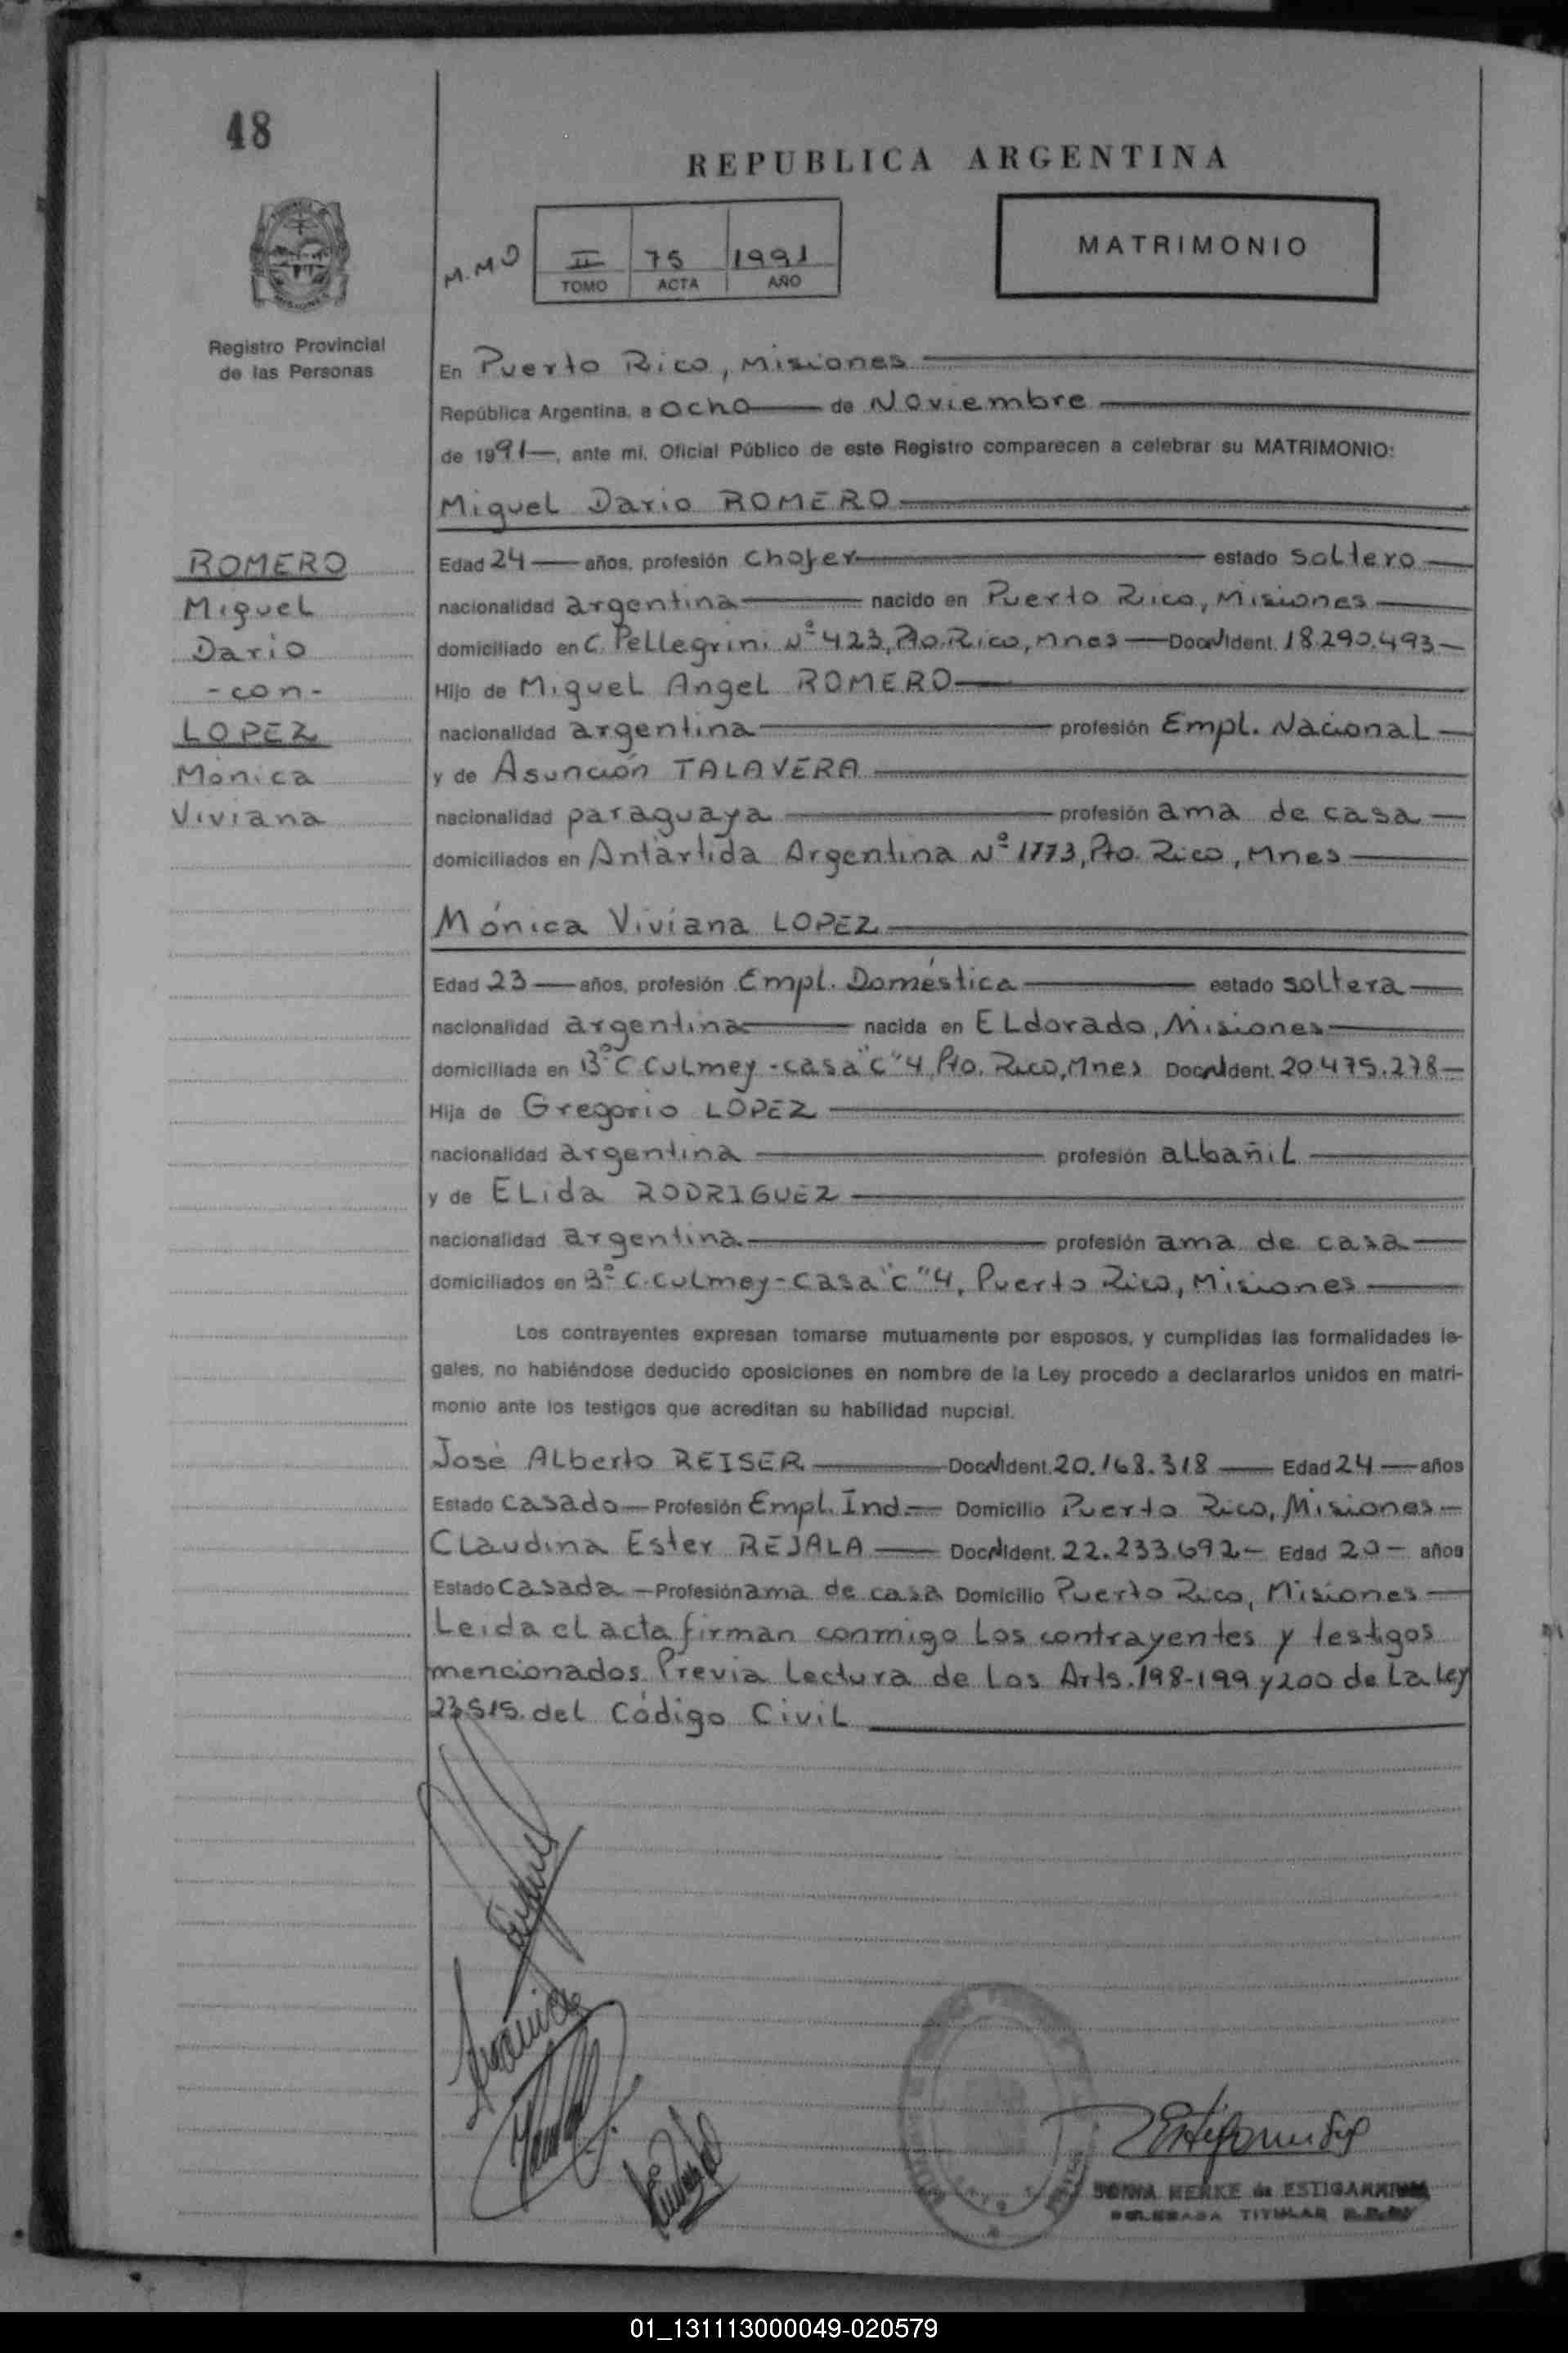 48
REPUBLICA ARGENTINA
M.M.O
II 75 1991
TOMO ACTA AÑO
MATRIMONIO
Registro Provincial
de las Personas
En Puerto Rico, Misiones
República Argentina, a ocho de Noviembre
de 1991, ante mi, Oficial Público de este Registro comparecen a celebrar su MATRIMONIO:
Miguel Dario ROMERO
ROMERO
Miguel
Dario
-con-
LOPEZ
Mónica
Viviana
Edad 24 años, profesión chofer estado soltero
nacionalidad argentina nacido en Puerto Rico, Misiones
domiciliado en C. Pellegrini Nº 423, Pto. Rico, Mnes Doc. Ident. 18.290.493
Hijo de Miguel Angel ROMERO
nacionalidad argentina profesión Empl. Nacional
y de Asunción TALAVERA
nacionalidad paraguaya profesión ama de casa
domiciliados en Antártida Argentina Nº 1773, Pto. Rico, Mnes
Mónica Viviana LOPEZ
Edad 23 años, profesión Empl. Doméstica estado soltera
nacionalidad argentina nacida en ELdorado, Misiones
domiciliada en Bº C. Culmey - casa "C" 4, Pto. Rico, Mnes Doc. Ident. 20.475.278
Hija de Gregorio LOPEZ
nacionalidad argentina profesión albañil
y de ELida RODRIGUEZ
nacionalidad argentina profesión ama de casa
domiciliados en Bº C. Culmey - Casa "C" 4, Puerto Rico, Misiones
Los contrayentes expresan tomarse mutuamente por esposos, y cumplidas las formalidades le-
gales, no habiéndose deducido oposiciones en nombre de la Ley procedo a declararlos unidos en matri-
monio ante los testigos que acreditan su habilidad nupcial.
José Alberto REISER Doc. Ident. 20.168.318 Edad 24 años
Estado Casado Profesión Empl. Ind. Domicilio Puerto Rico, Misiones
Claudina Ester REJALA Doc. Ident. 22.233.692 Edad 20 años
Estado Casada Profesión ama de casa Domicilio Puerto Rico, Misiones
Leida el acta firman conmigo Los contrayentes y testigos
mencionados. Previa Lectura de Los Arts. 198-199 y 200 de La Ley
23.515. del Código Civil
SONIA MERKE de ESTIGARRIBIA
DELEGADA TITULAR
01_131113000049-020579